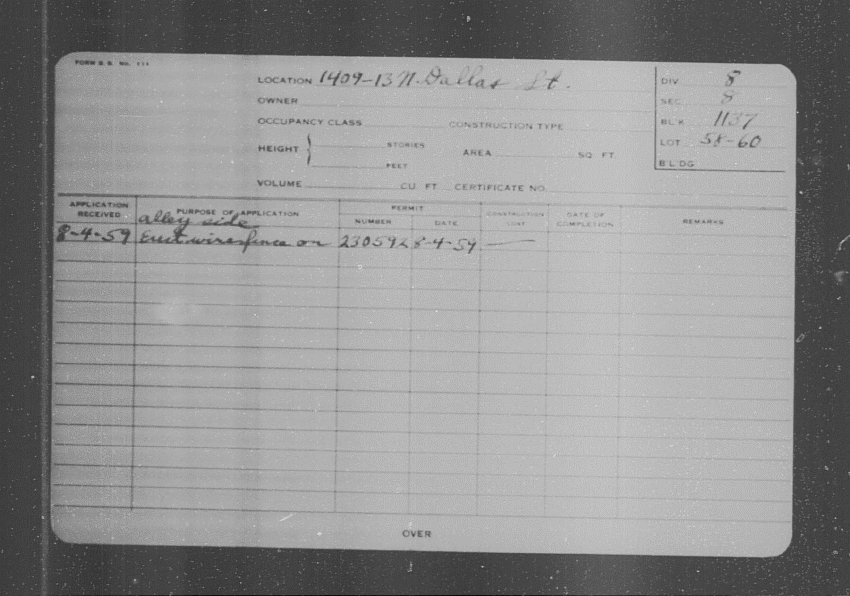 FORM B. B. No.
LOCATION 1409-13 N. Dallas St.
DIV. 8
OWNER
SEC. 8
OCCUPANCY CLASS CONSTRUCTION TYPE
BL'K 1137
HEIGHT STORIES AREA SQ. FT.
FEET
LOT 58-60
BLDG.
VOLUME CU. FT. CERTIFICATE NO.
APPLICATION RECEIVED PURPOSE OF APPLICATION PERMIT NUMBER DATE CONSTRUCTION COST DATE OF COMPLETION REMARKS
alley side
8-4-59 Erect wire fence on 23059 8-4-59 —
OVER